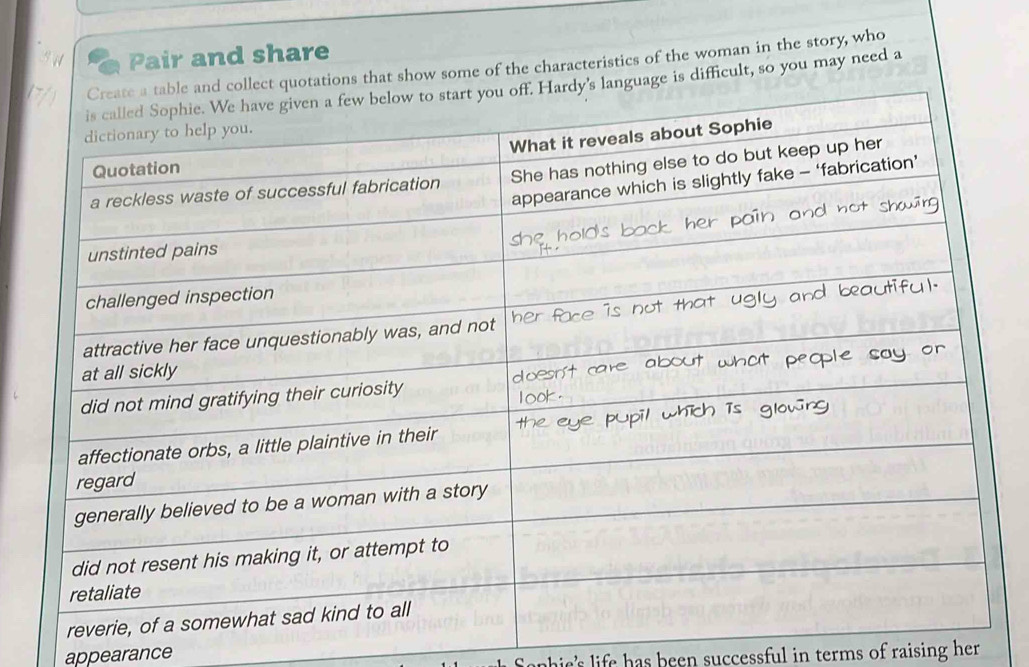 Pair and share
Create a table and collect quotations that show some of the characteristics of the woman in the story, who
is called Sophie. We have given a few below to start you off. Hardy's language is difficult, so you may need a
dictionary to help you.
Quotation
What it reveals about Sophie
a reckless waste of successful fabrication
She has nothing else to do but keep up her
appearance which is slightly fake – 'fabrication'
unstinted pains
she holds back her pain and not showing
it.
challenged inspection
attractive her face unquestionably was, and not
at all sickly
her face is not that ugly and beautiful.
did not mind gratifying their curiosity
doesn't care about what people say or
look.
affectionate orbs, a little plaintive in their
regard
the eye pupil which is glowing
generally believed to be a woman with a story
did not resent his making it, or attempt to
retaliate
reverie, of a somewhat sad kind to all
appearance
Sophie's life has been successful in terms of raising her